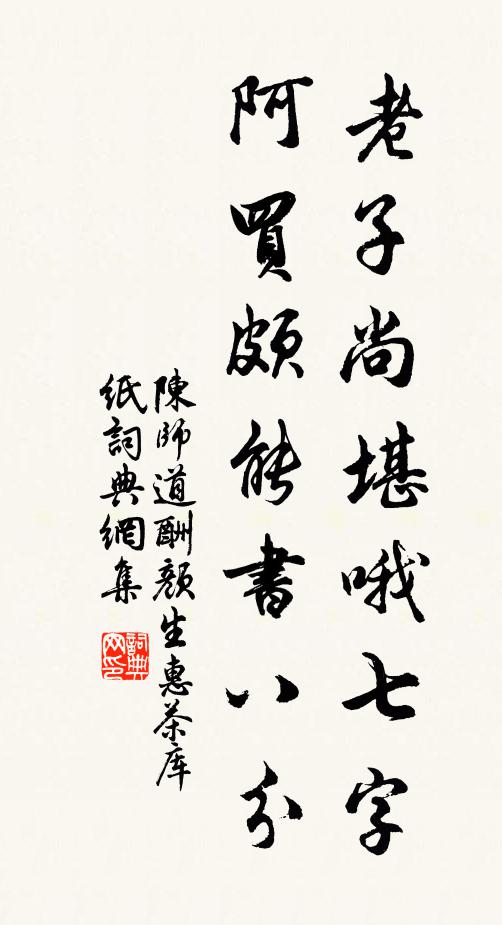 老子尚堪哦七字
阿買頗能書八分
陳師道酬顏生惠茶庫
紙詞典網集
詞典网印